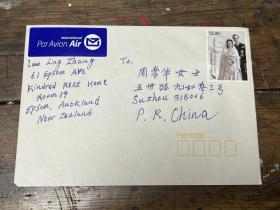 International
Par Avion Air
$2.00
Luo Ling Zhang
61 Epsom Ave
Kindred Rest Home
Room 19
Epsom, Auckland
New Zealand
To:
周孝华女士
五卅路九如巷三号
Suzhou 215006
P. R. China
POSTCODE